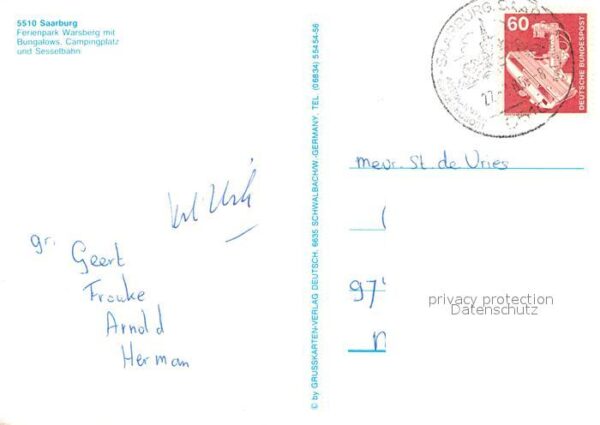 5510 Saarburg
Ferienpark Warsberg mit
Bungalows, Campingplatz
und Sesselbahn
gr.
Geert
Frouke
Arnold
Herman
© by GRUSSKARTEN-VERLAG DEUTSCH. 6635 SCHWALBACH/W.-GERMANY, TEL. (06834) 55454-56
SAARBURG, SAAR
60
DEUTSCHE BUNDESPOST
mevr. St. de Vries
97
privacy protection
Datenschutz